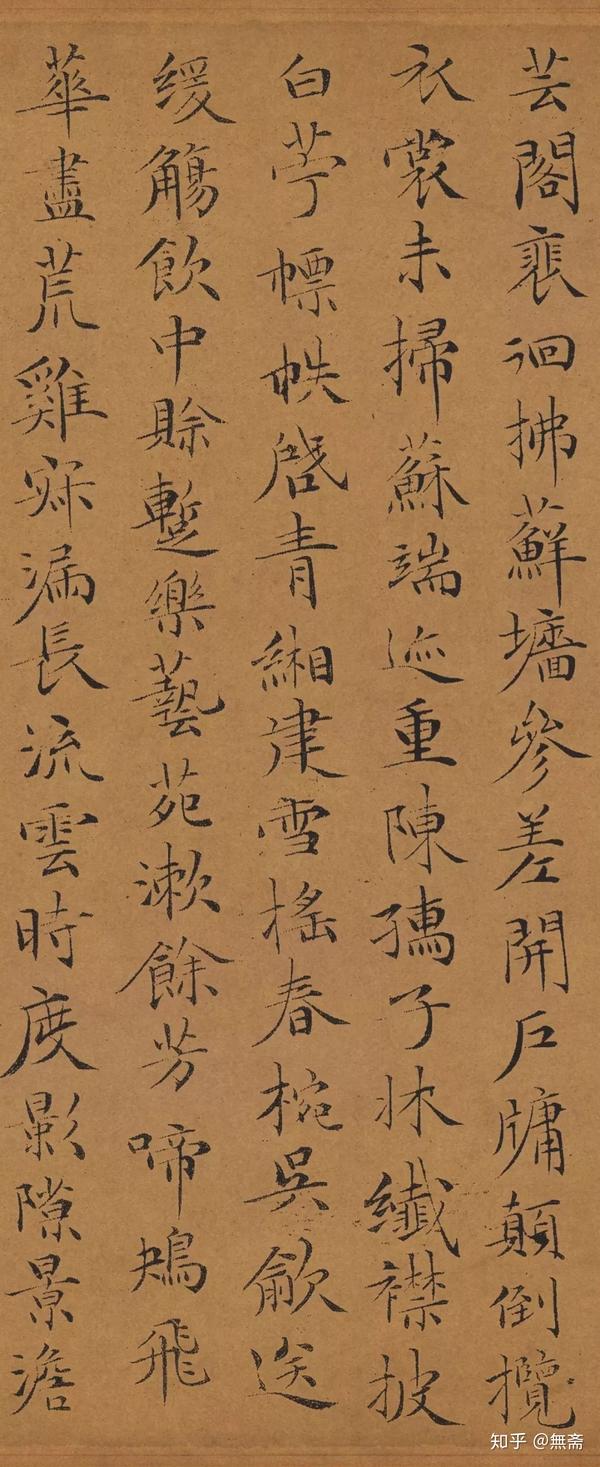 芸閣裵徊拂蘚墻參差開戶牖顛倒攬
衣裳未掃蘇端迹重陳孺子牀纖襟披
白苧幖帙啓青緗建雪搖春椀吳歈送
緩觴飲中賒蹔樂藝苑漱餘芳啼鴂飛
華盡荒雞寐漏長流雲時度影隙景澹
知乎 @無斋